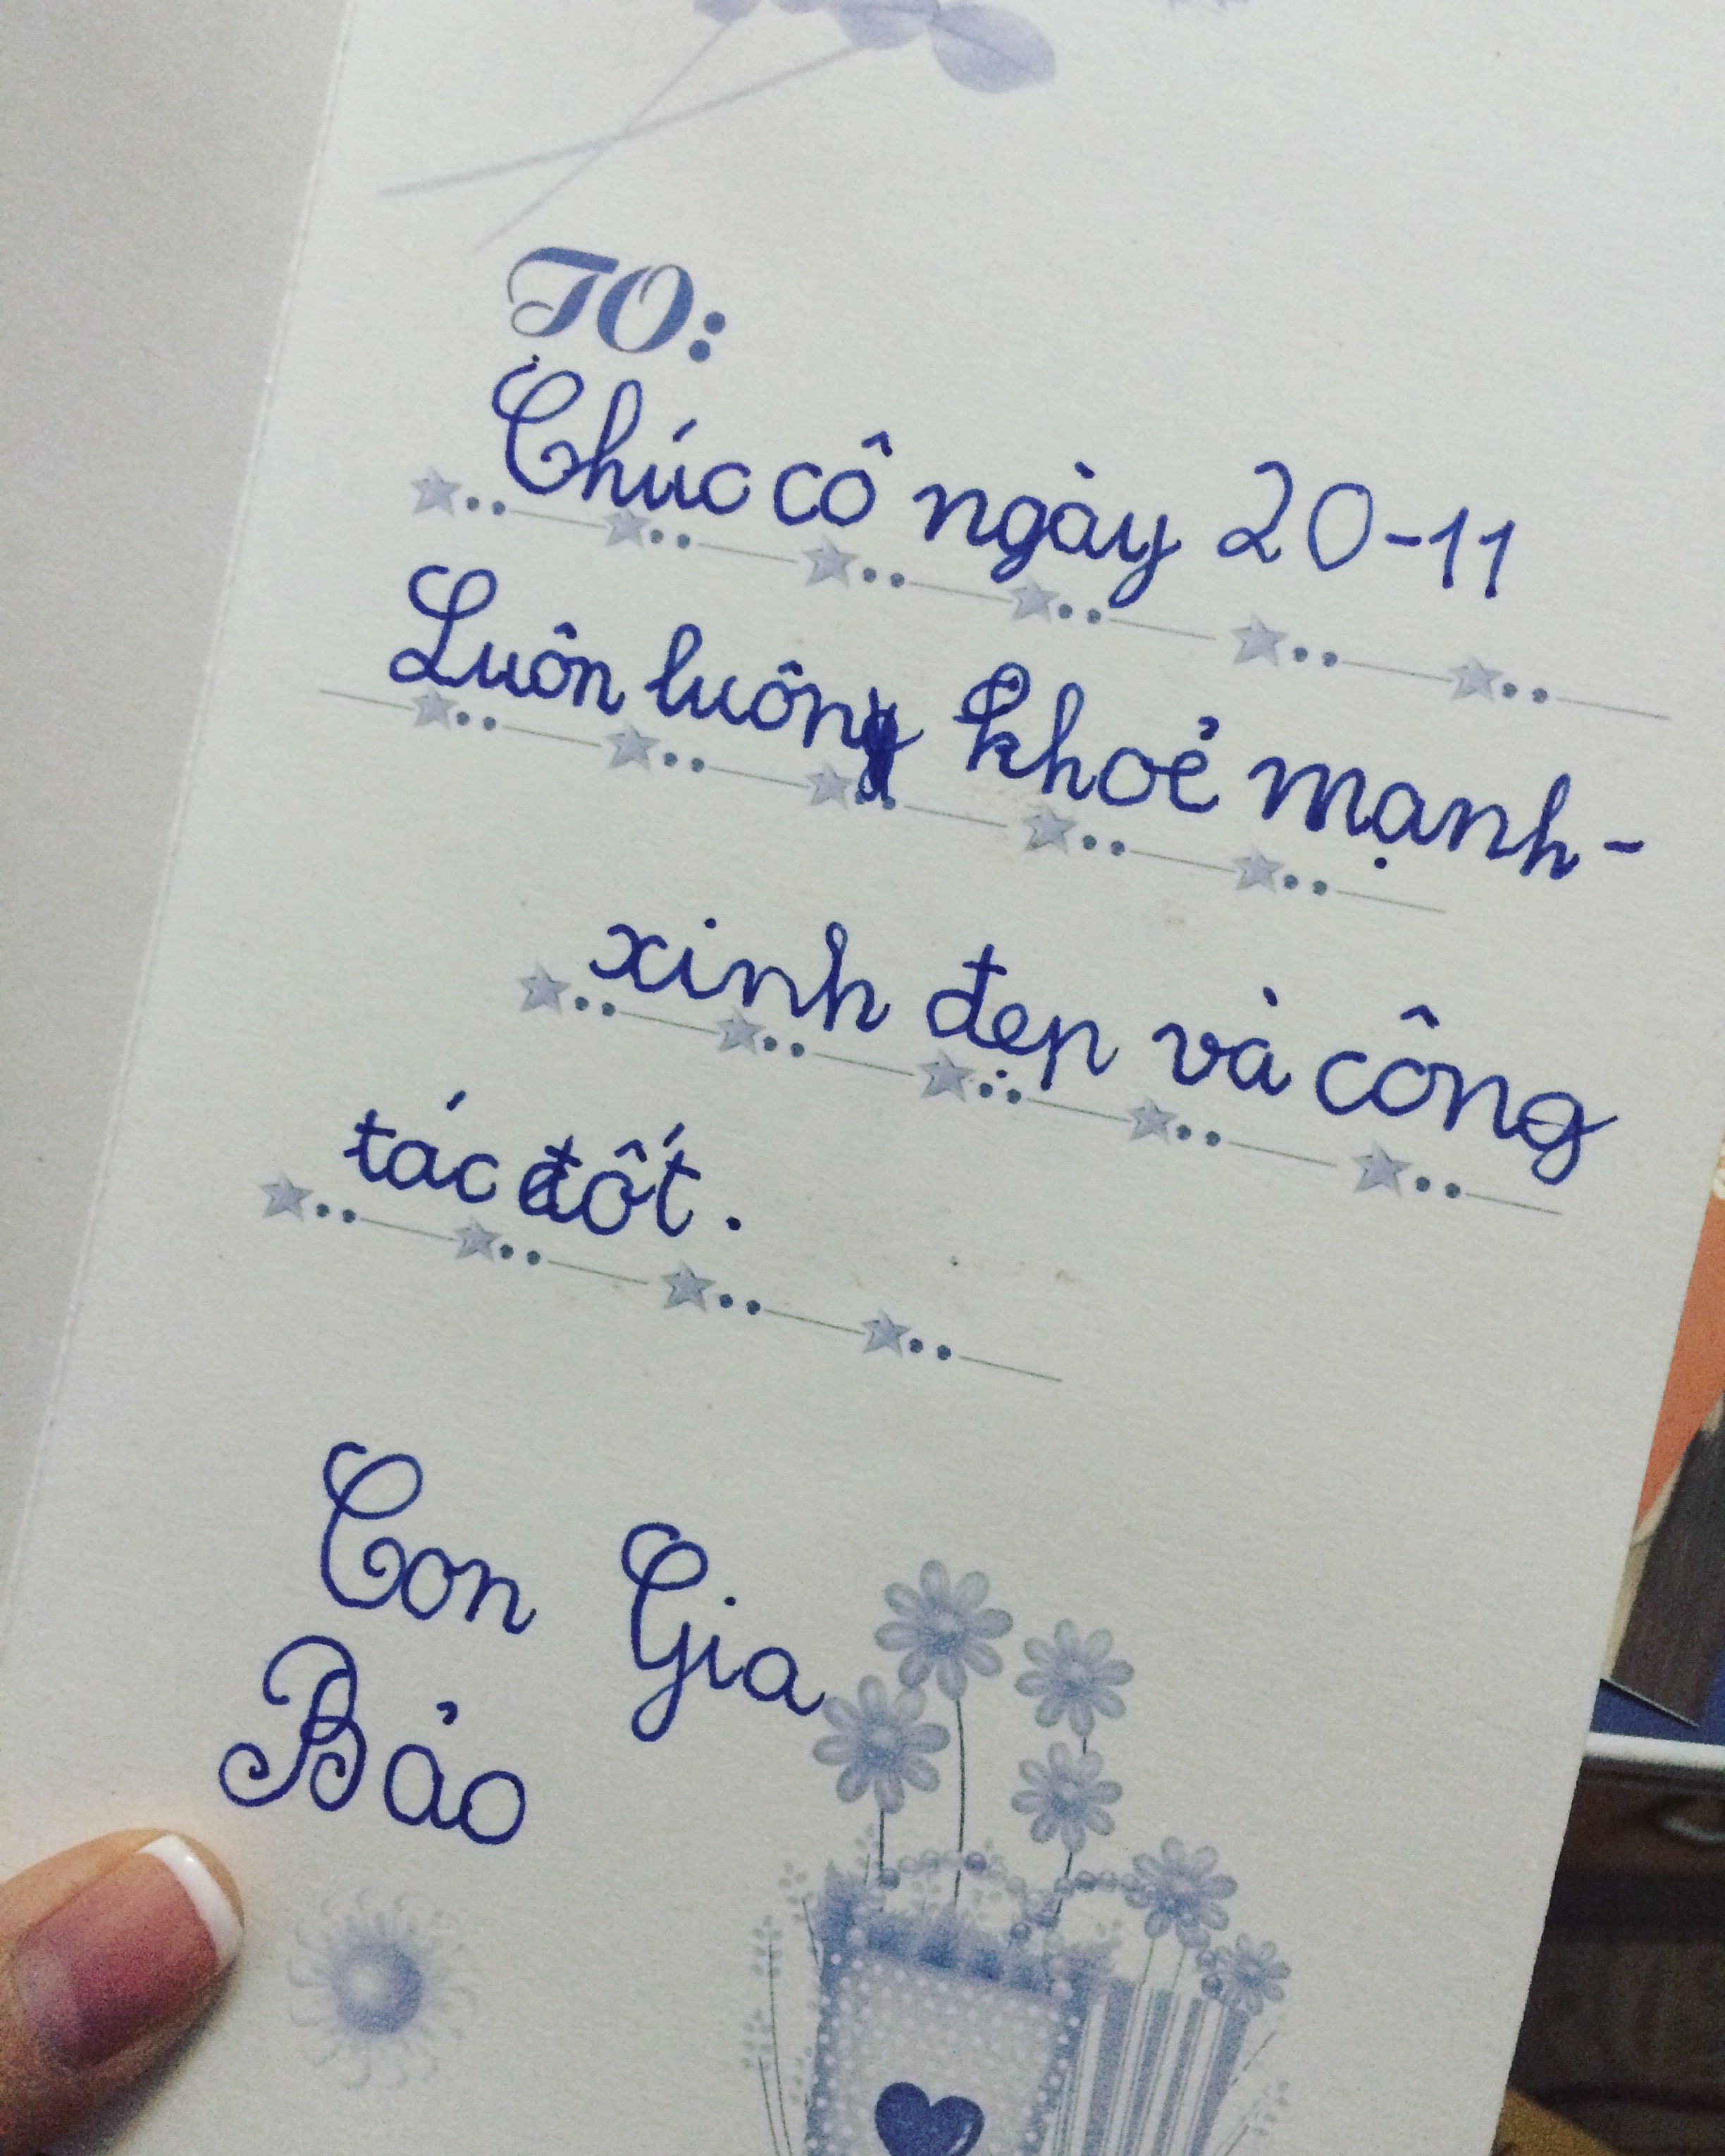 TO:
Chúc cô ngày 20-11
Luôn luôn khoẻ mạnh -
xinh đẹp và công
tác đốt.
Con Gia
Bảo